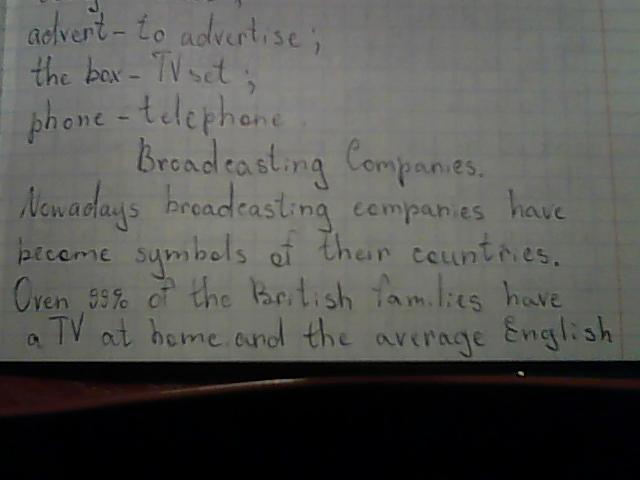 advert - to advertise;
the box - TV set;
phone - telephone.
Broadcasting Companies.
Nowadays broadcasting companies have
become symbols of their countries.
Oven 99% of the British families have
a TV at home and the average English